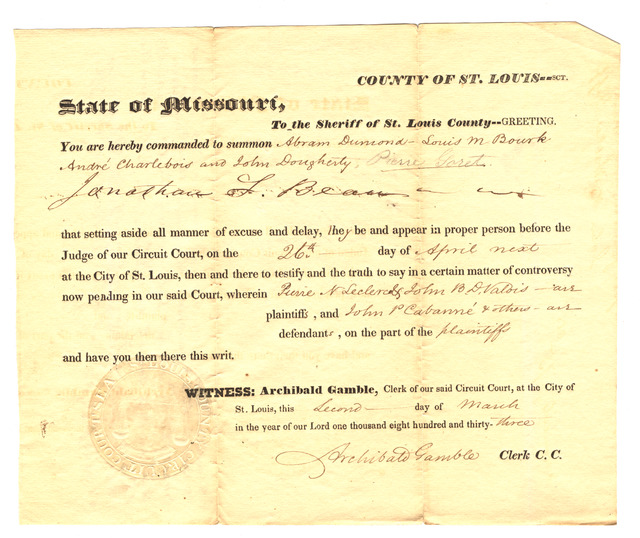 COUNTY OF ST. LOUIS--SCT.
State of Missouri,
To the Sheriff of St. Louis County--GREETING.
You are hereby commanded to summon Abram Dumond - Louis M Bourk
André Charlebois and John Dougherty, Pierre Toret
Jonathan L. Bean
that setting aside all manner of excuse and delay, they be and appear in proper person before the
Judge of our Circuit Court, on the 26th day of April next
at the City of St. Louis, then and there to testify and the truth to say in a certain matter of controversy
now pending in our said Court, wherein Pierre N Leclerc & John B D Valois - are
plaintiffs, and John P Cabanné & others - are
defendants, on the part of the plaintiffs
and have you then there this writ.
WITNESS: Archibald Gamble, Clerk of our said Circuit Court, at the City of
St. Louis, this Second day of March
in the year of our Lord one thousand eight hundred and thirty-three
Archibald Gamble Clerk C. C.